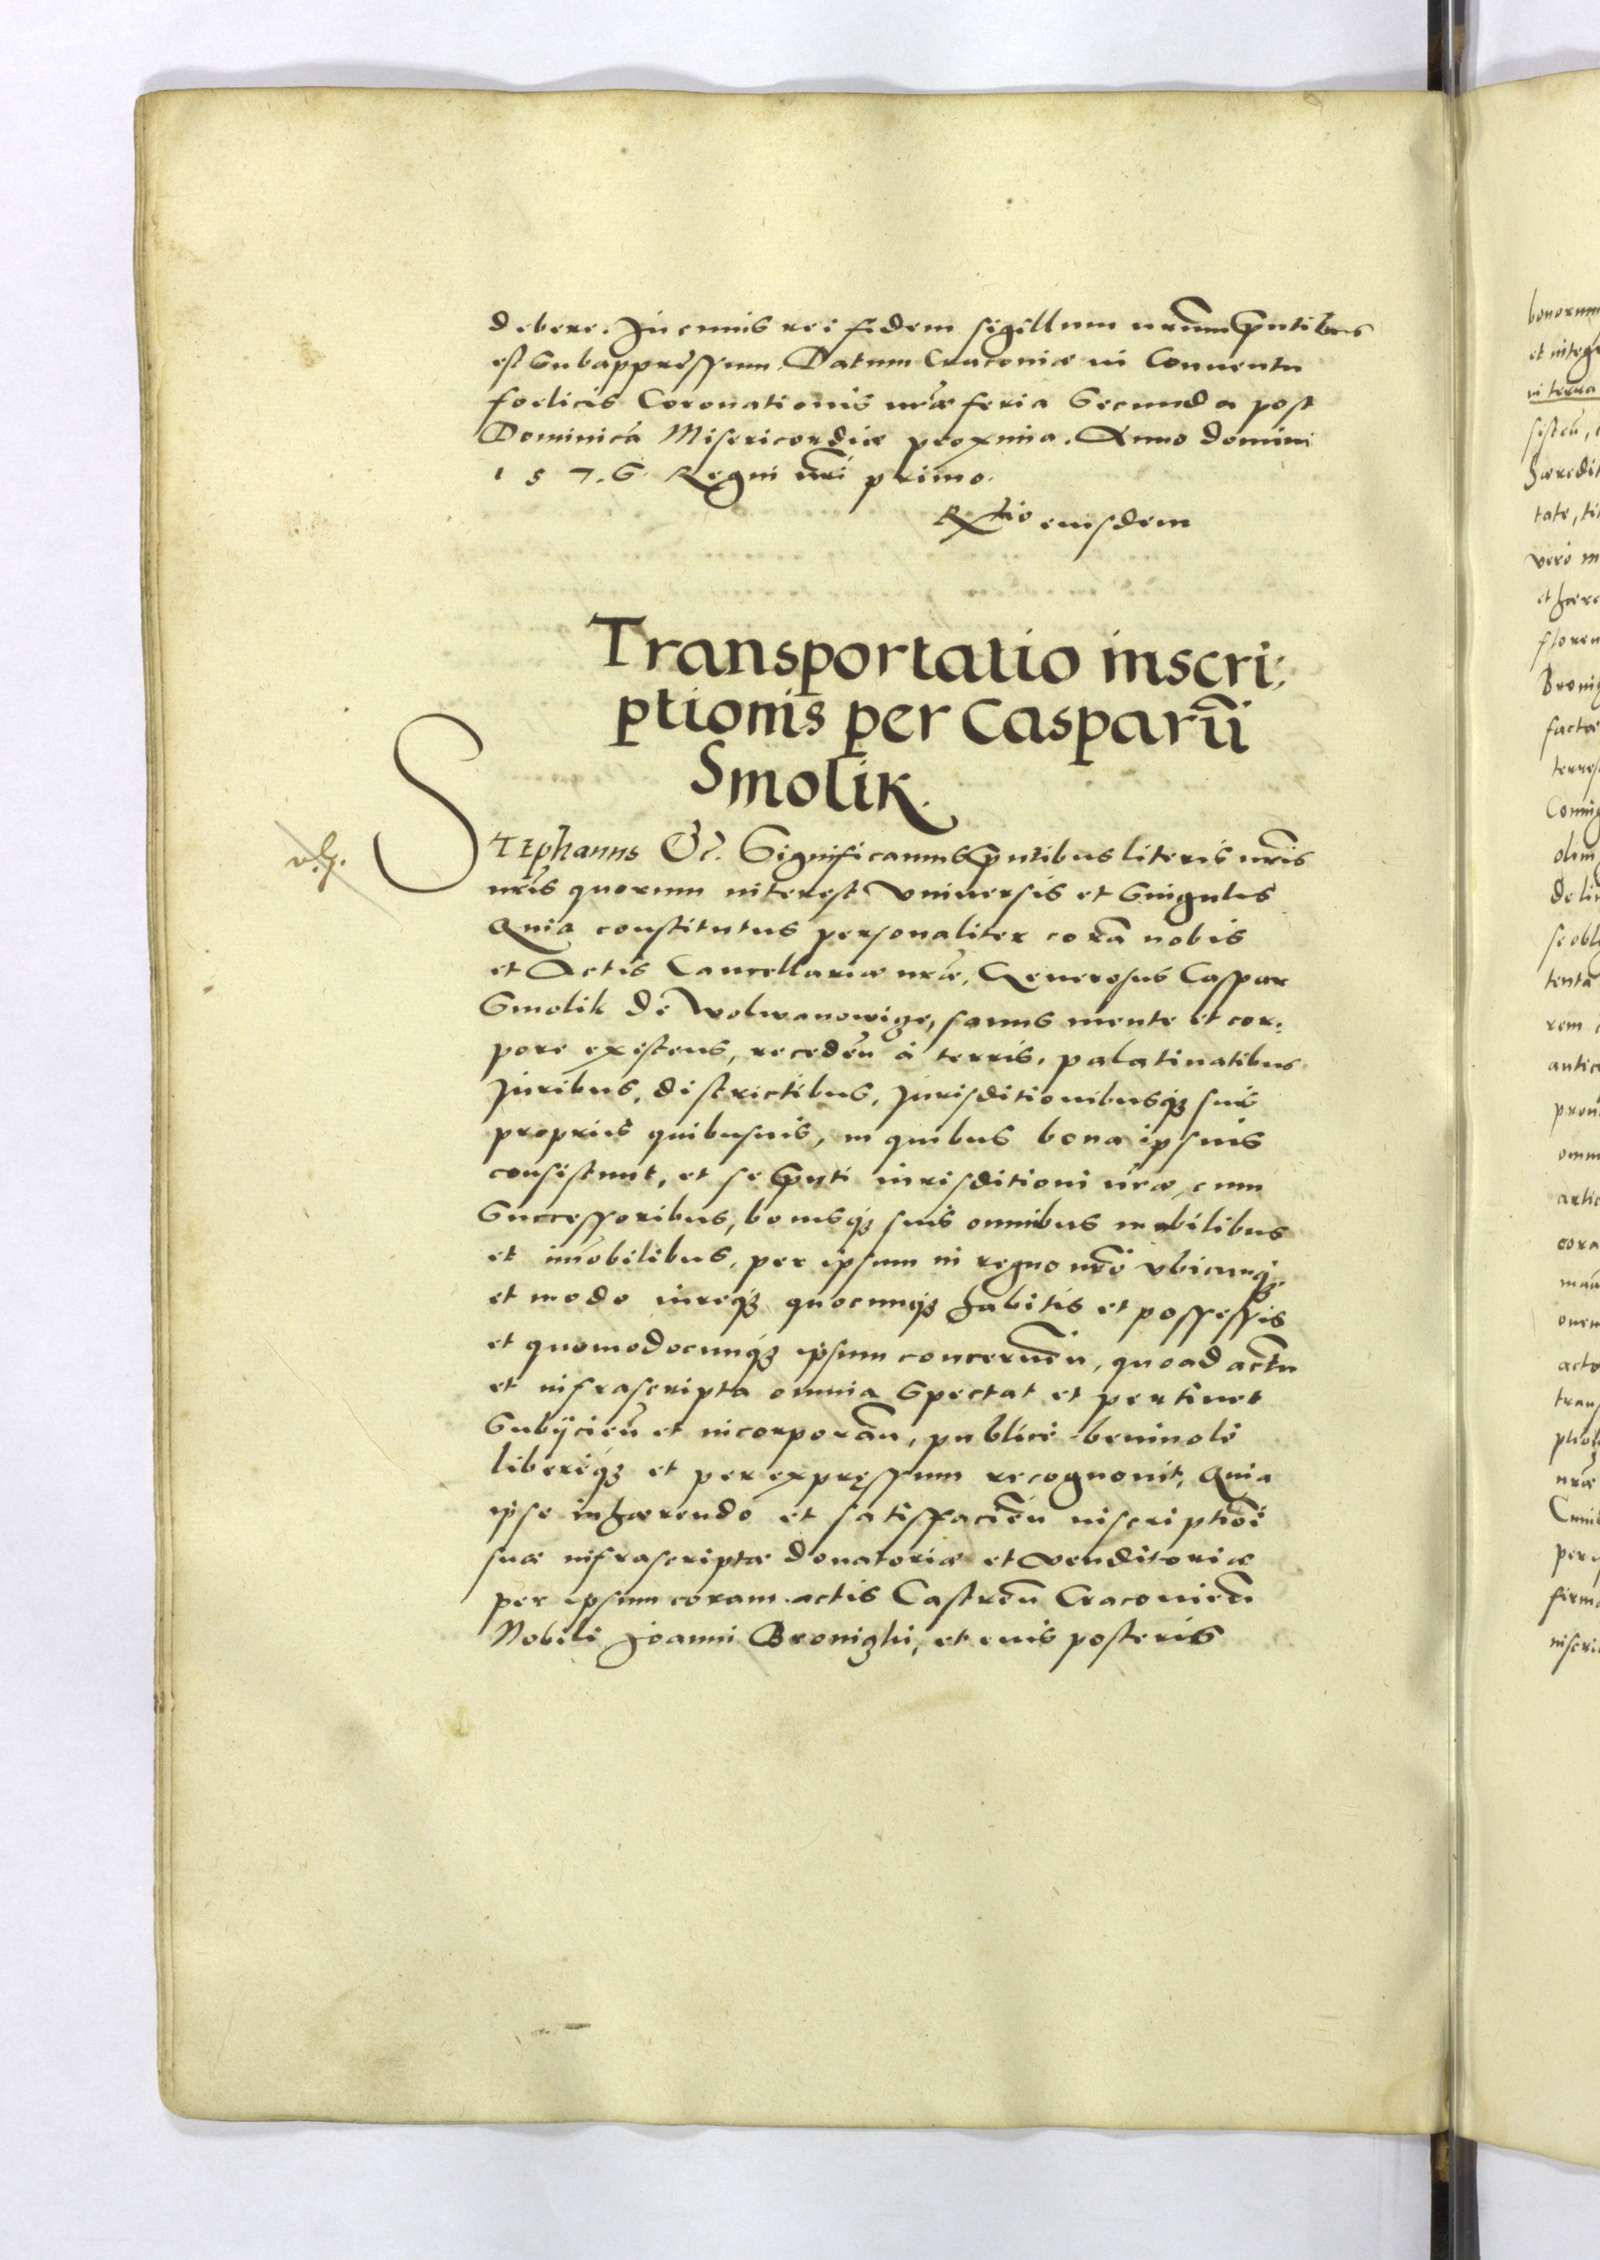 debere. In cuius rei fidem sigillum nr̃um p̃ntibus
est Subappressum. Datum Cracouiæ in Conuentu
foelicis Coronationis nr̃æ feria Secunda post
Dominicã Misericordiæ proxima. Anno domini
1576. Regni nr̃i primo.
Rx̃tio eiusdem
Transportatio inscri:
ptionis per Casparũ
Smolik.
STEphanus &c. Significamus p̃ntibus literis nr̃is
nr̃is quorum interest Vniuersis et Singulis
Quia constitutus personaliter corã nobis
et Actis Cancellariæ nr̃æ, Generosus Caspar
Smolik de Wolwanowige, sanus mente et cor:
pore existens, recedeñ à terris, palatinatibus
Iuribus, districtibus, Iurisditionibusq̃ suis
proprijs quibusuis, in quibus bona ipsius
consistunt, et se p̃nti iurisditioni nr̃æ, cum
Successoribus, bonisq̃ suis omnibus mobilibus
et im̃obilibus, per ipsum in regno nr̃o vbicunq̃
et modo iureq̃ quocunq̃ habitis et possessis
et quomodocunq̃ ipsum concerneñ, quoad actũ
et infrascripta omnia Spectat et pertinet
Subijcieñ et incorporañ, publicè beniuolè
liberèq̃ et per expressum recognouit, Quia
ipse inhærendo et satisfacieñ inscriptiõi
suæ infrascriptæ donatoriæ et venditoriæ
per ipsum coram actis Castreñ Cracouieñ
Nobili Joanni Bronighi, et eius posteris
bonorum
et integr
in terra
hæredit
vero in
et hære
floren
factæ
olim
tentã
rem
omni
artic
cora
acto
trans
nr̃æ
firma